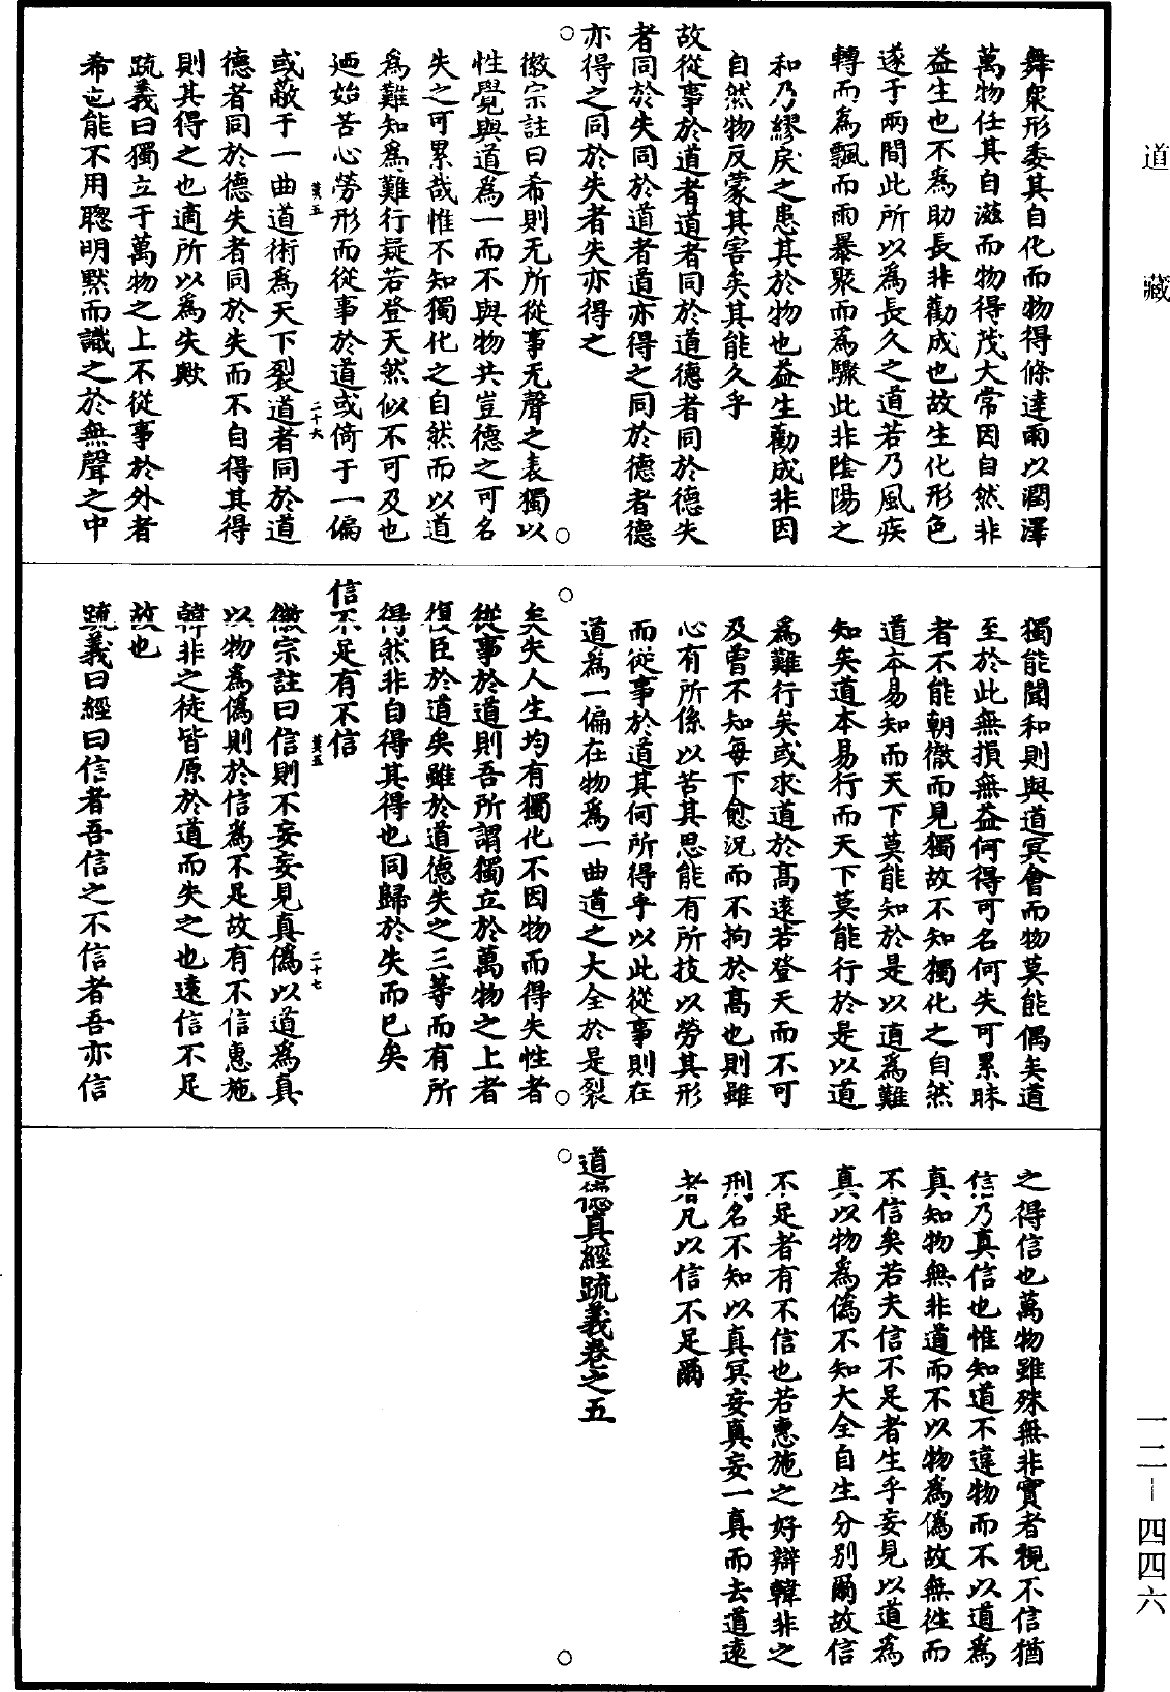 道藏
舞衆形委其自化而物得條達雨以潤澤
萬物任其自滋而物得茂大常因自然非
益生也不為助長非勸成也故生化形色
遂于兩間此所以為長久之道若乃風疾
轉而為飄而雨暴聚而為驟此非陰陽之
和乃繆戾之患其於物也益生勸成非因
自然物反蒙其害矣其能久乎
故從事於道者道者同於道德者同於德失
者同於失同於道者道亦得之同於德者德
亦得之同於失者失亦得之
徽宗註曰希則无所從事无聲之表獨以
性覺與道為一而不與物共豈德之可名
失之可累哉惟不知獨化之自然而以道
為難知為難行疑若登天然似不可及也
迺始苦心勞形而從事於道或倚于一偏
莫五
二十六
或蔽于一曲道術為天下裂道者同於道
德者同於德失者同於失而不自得其得
則其得之也適所以為失歟
疏義曰獨立于萬物之上不從事於外者
希也能不用聰明黙而識之於無聲之中
獨能聞和則與道冥會而物莫能偶矣道
至於此無損無益何得可名何失可累昧
者不能朝徹而見獨故不知獨化之自然
道本易知而天下莫能知於是以道為難
知矣道本易行而天下莫能行於是以道
為難行矣或求道於高遠若登天而不可
及曾不知每下愈況而不拘於高也則雖
心有所係以苦其思能有所技以勞其形
而從事於道其何所得乎以此從事則在
道為一偏在物為一曲道之大全於是裂
矣失人生均有獨化不因物而得失性者
從事於道則吾所謂獨立於萬物之上者
復臣於道矣雖於道德失之三等而有所
得然非自得其得也同歸於失而已矣
信不足有不信
莫五
二十七
徽宗註曰信則不妄妄見真偽以道為真
以物為偽則於信為不足故有不信惠施
韓非之徒皆原於道而失之也遠信不足
故也
疏義曰經曰信者吾信之不信者吾亦信
之得信也萬物雖殊無非實者視不信猶
信乃真信也惟知道不違物而不以道為
真知物無非道而不以物為偽故無徃而
不信矣若夫信不足者生乎妄見以道為
真以物為偽不知大全自生分別爾故信
不足者有不信也若惠施之好辯韓非之
刑名不知以真冥妄真妄一真而去道遠
者凡以信不足爾
道德真經疏義卷之五
一二-四四六